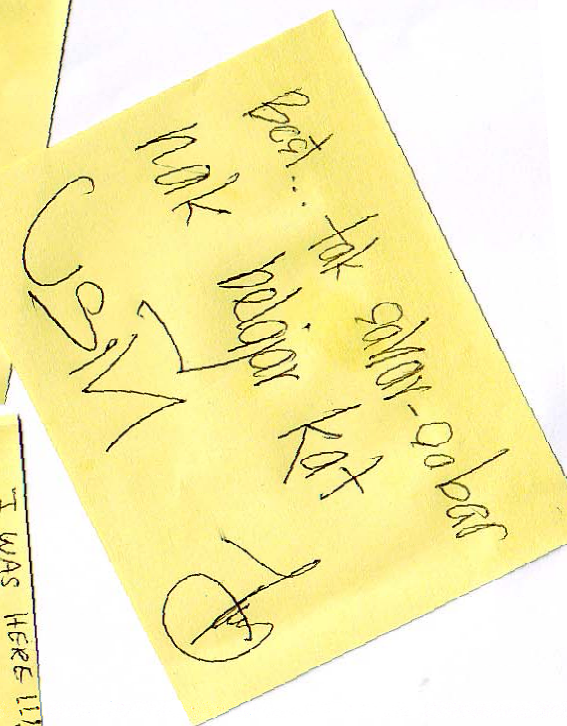 Best... tak sabar-sabar
nak belajar kat
USM
I WAS HERE !!!